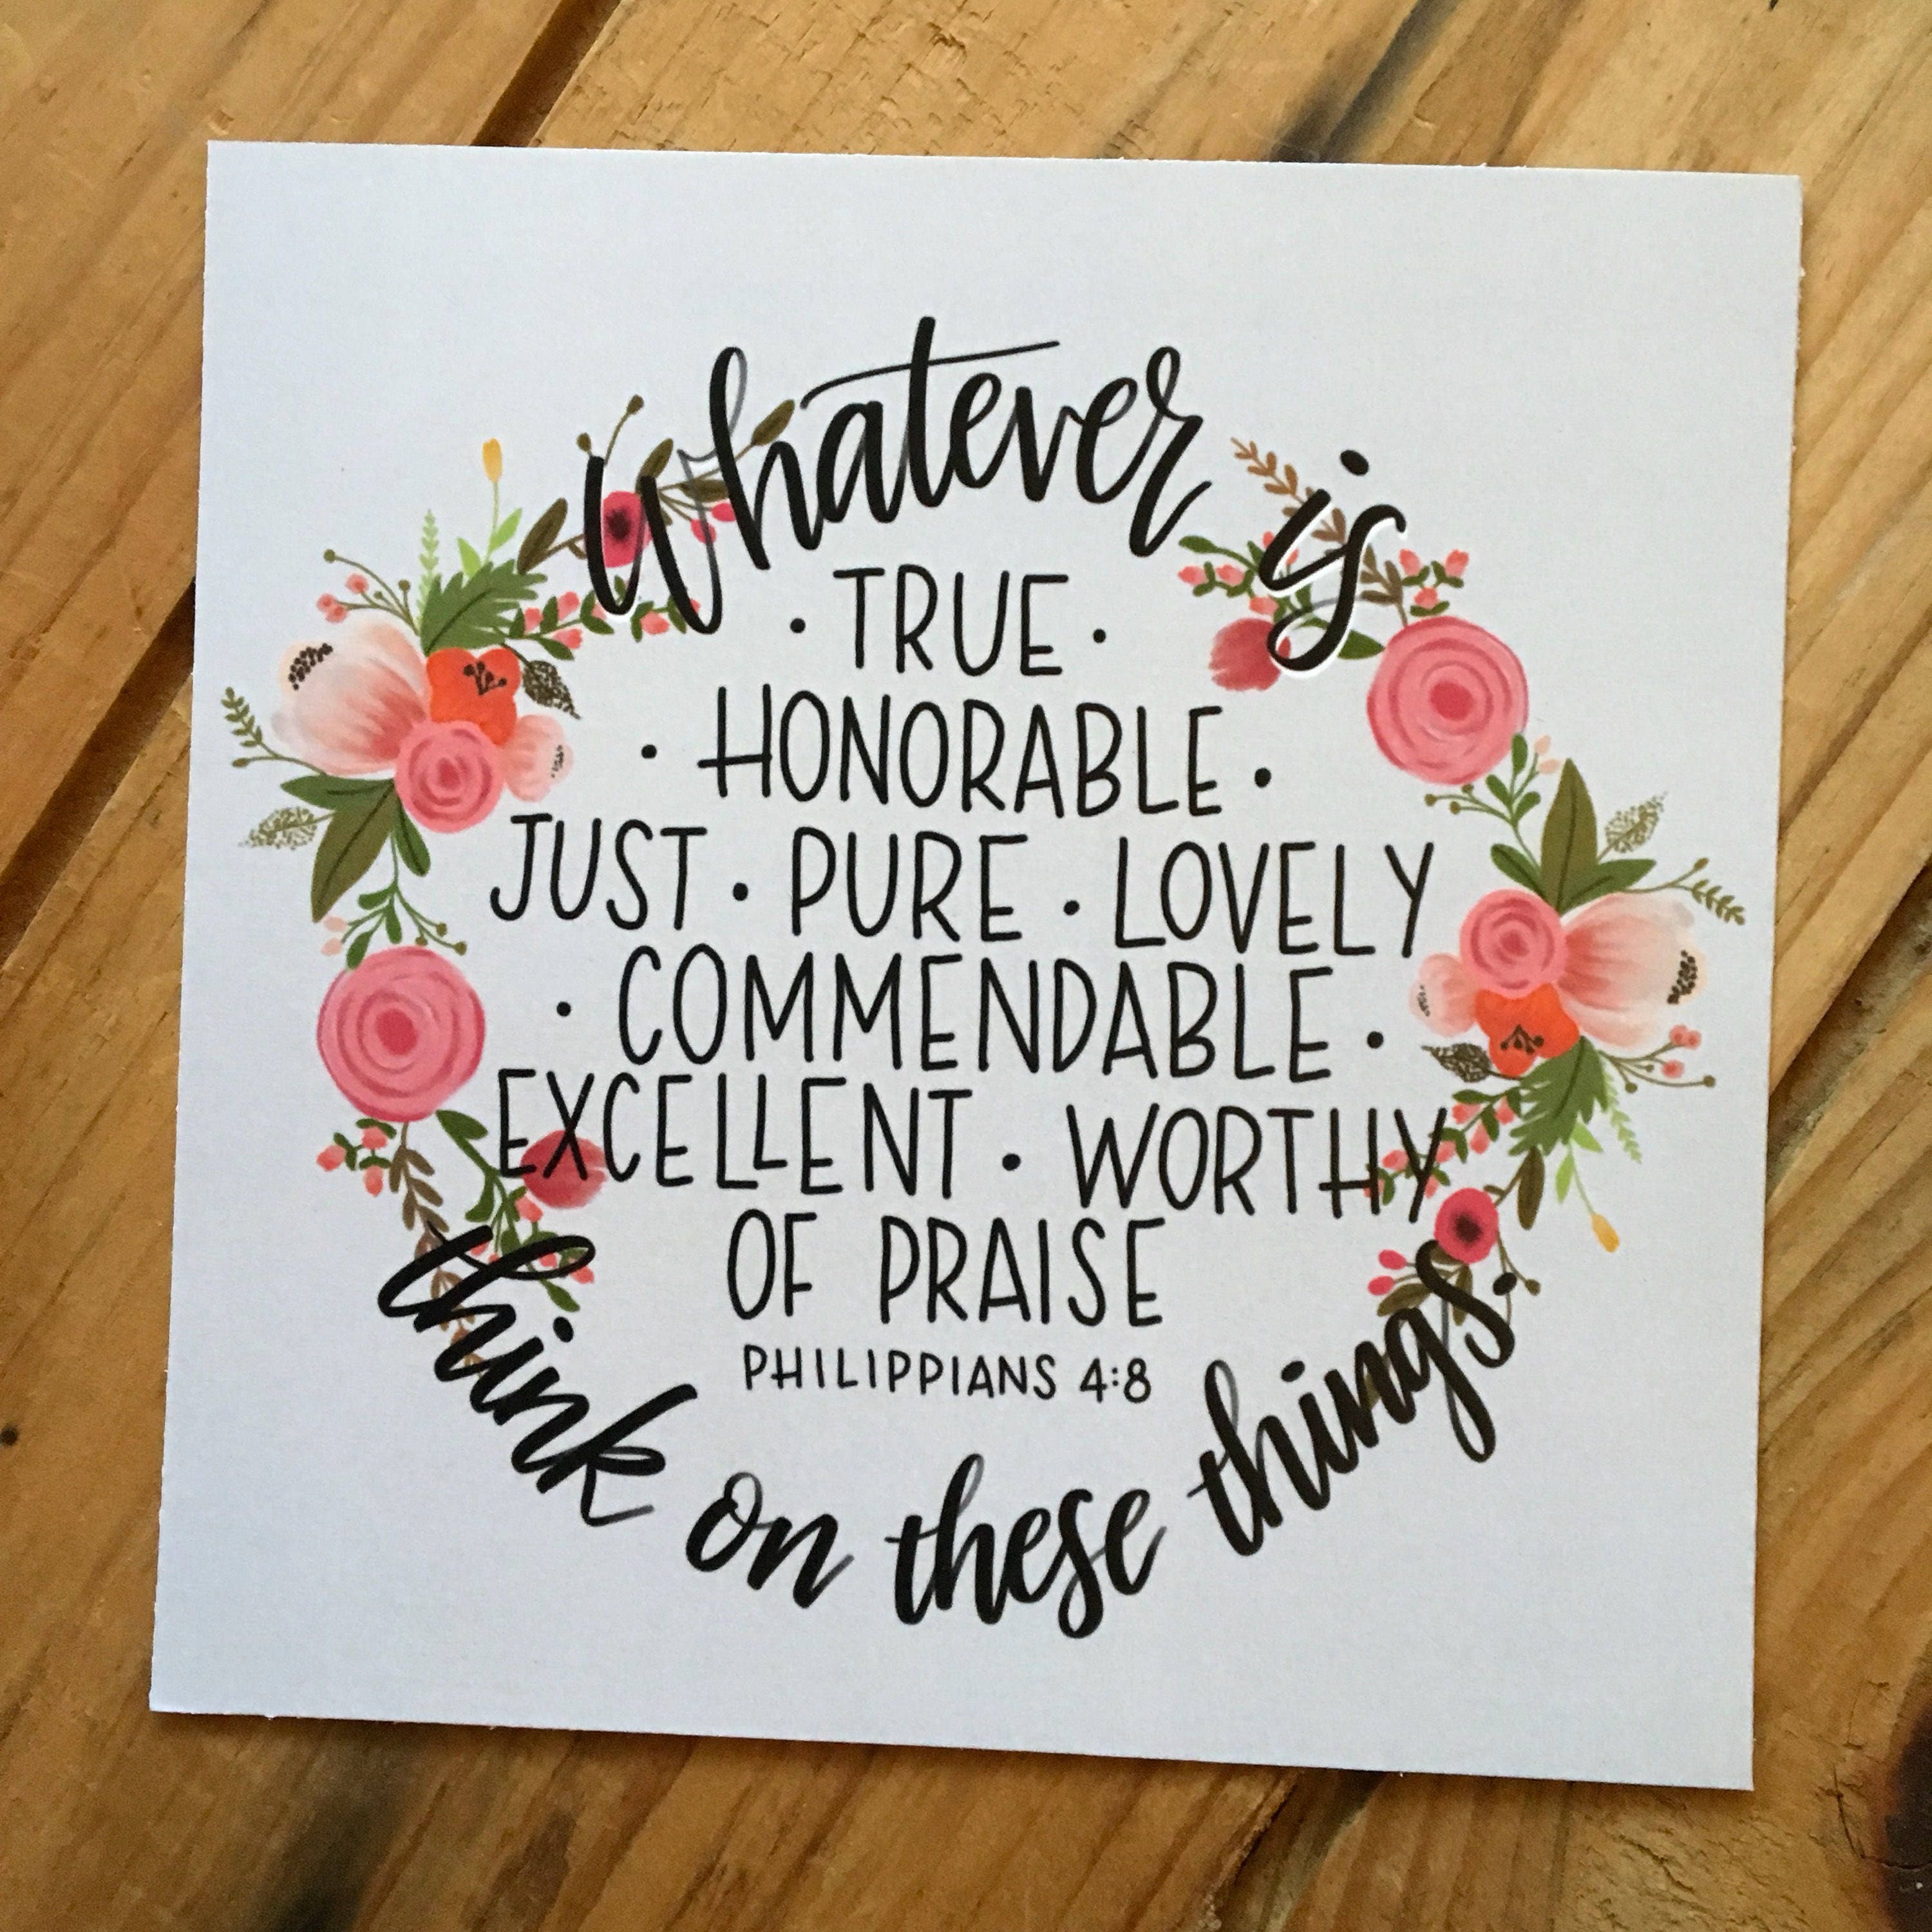 Whatever is
· TRUE ·
· HONORABLE ·
JUST · PURE · LOVELY
· COMMENDABLE ·
EXCELLENT · WORTHY
OF PRAISE
PHILIPPIANS 4:8
think on these things.